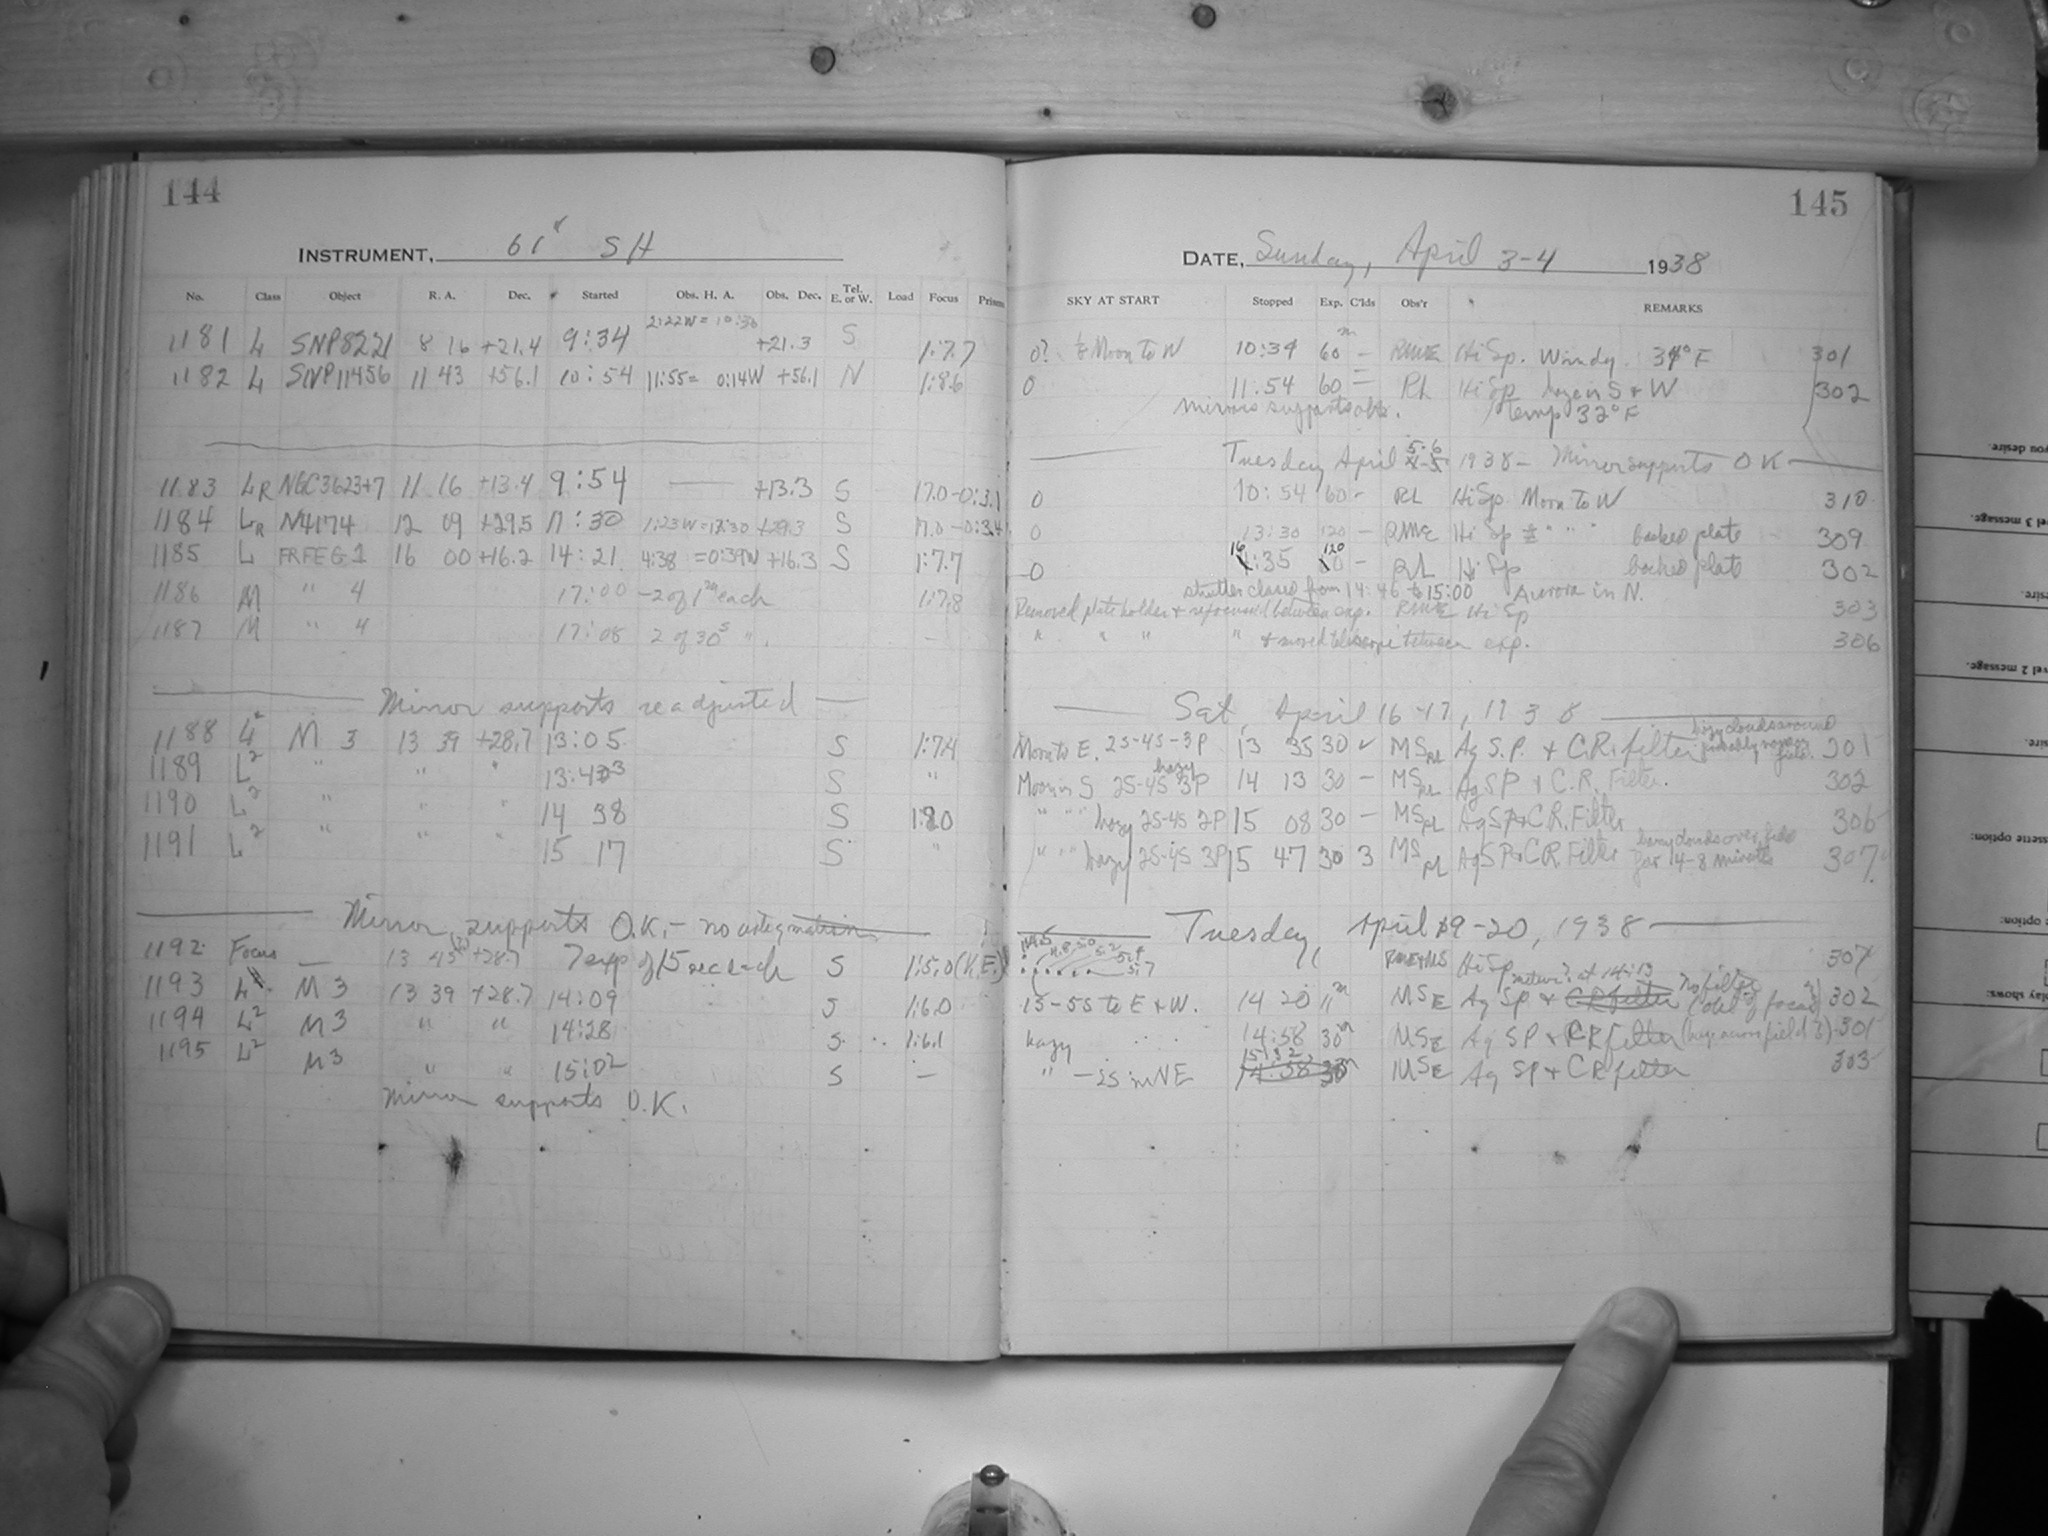 144
INSTRUMENT, 61" SH
No. Class Object R. A. Dec. Started Obs. H. A. Obs. Dec. Tel. E. or W. Load Focus Prism
1181 L SNP8221 8 16 +21.4 9:34 2:22W = 10:36 +21.3 S 1:7.7
1182 L SNP11456 11 43 +56.1 10:54 11:55= 0:14W +56.1 N 1:8.6
1183 LR NGC3623+7 11 16 +13.4 9:54 — +13.3 S 17.0-0:3.1
1184 LR N4174 12 09 +29.5 11:30 1:23W=13:30 +29.3 S 17.0-0:3.4
1185 L FRFEG-1 16 00 +16.2 14:21 4:38 =0:39W +16.3 S 1:7.7
1186 M " 4 17:00 -2 of 1m each 1:7.8
1187 M " 4 17:08 2 of 30s " . —
Mirror supports readjusted
1188 L2 M 3 13 39 +28.7 13:05 S 1:7.4
1189 L2 " " " 13:43 S "
1190 L2 " " " 14 38 S 1:8.0
1191 L2 " " " 15 17 S "
Mirror supports O.K. - no astigmatism
1192 Focus — 13 45(?) +28.7 7 exp of 15 sec each S 1:5.0 (K.E.)
1193 L M 3 13 39 +28.7 14:09 S 1:6.0
1194 L2 M 3 " " 14:28 S 1:6.1
1195 L2 M3 " " 15:02 S —
Mirror supports O.K.
145
DATE, Sunday, April 3-4 1938
SKY AT START Stopped Exp. C'lds Obs'r REMARKS
0? ½ Moon to W 10:34 60m — RME Hi Sp. Windy. 34°F 301
0 11:54 60 = RL Hi Sp haze in S + W 302
mirror supports ok. Temp 32°F
Tuesday April 5-6 1938 — Mirror supports OK
0 10:54 60 - RL Hi Sp Moon to W 310
0 13:30 120 - RME Hi Sp " " " backed plate 309
0 16:35 120 - RL Hi Sp backed plate 302
shutter closed from 14:46 to 15:00 Aurora in N.
Removed plate holder + refocused between exp. RME Hi Sp 303
" " " " + moved telescope between exp. 306
Sat, April 16-17, 1938
Moon to E. 2S-4S-3P 13 35 30 ✓ MS RL Ag S.P. + C.R. filter hazy clouds around probably over field. 301
Moon in S 2S-4S hazy 3P 14 13 30 — MS RL Ag SP + C.R. Filter. 302
" " " hazy 2S-4S 2P 15 08 30 — MS RL Ag SP + C.R. Filter 306
" " " hazy 2S-4S 3P 15 47 30 3 MS RL Ag SP + C.R. Filter heavy clouds over field for 4-8 minutes 307
Tuesday, April 19-20, 1938
RME+MS Hi Sp 307
meteor? at 14:13 No filter
1S-5S to E + W. 14 20 11m MSE Ag SP + CR filter (out of focus?) 302
hazy 14:58 30m MSE Ag SP + CR filter (haze across field?) 301
" —2S in NE 15:32 30 MSE Ag SP + CR filter 303